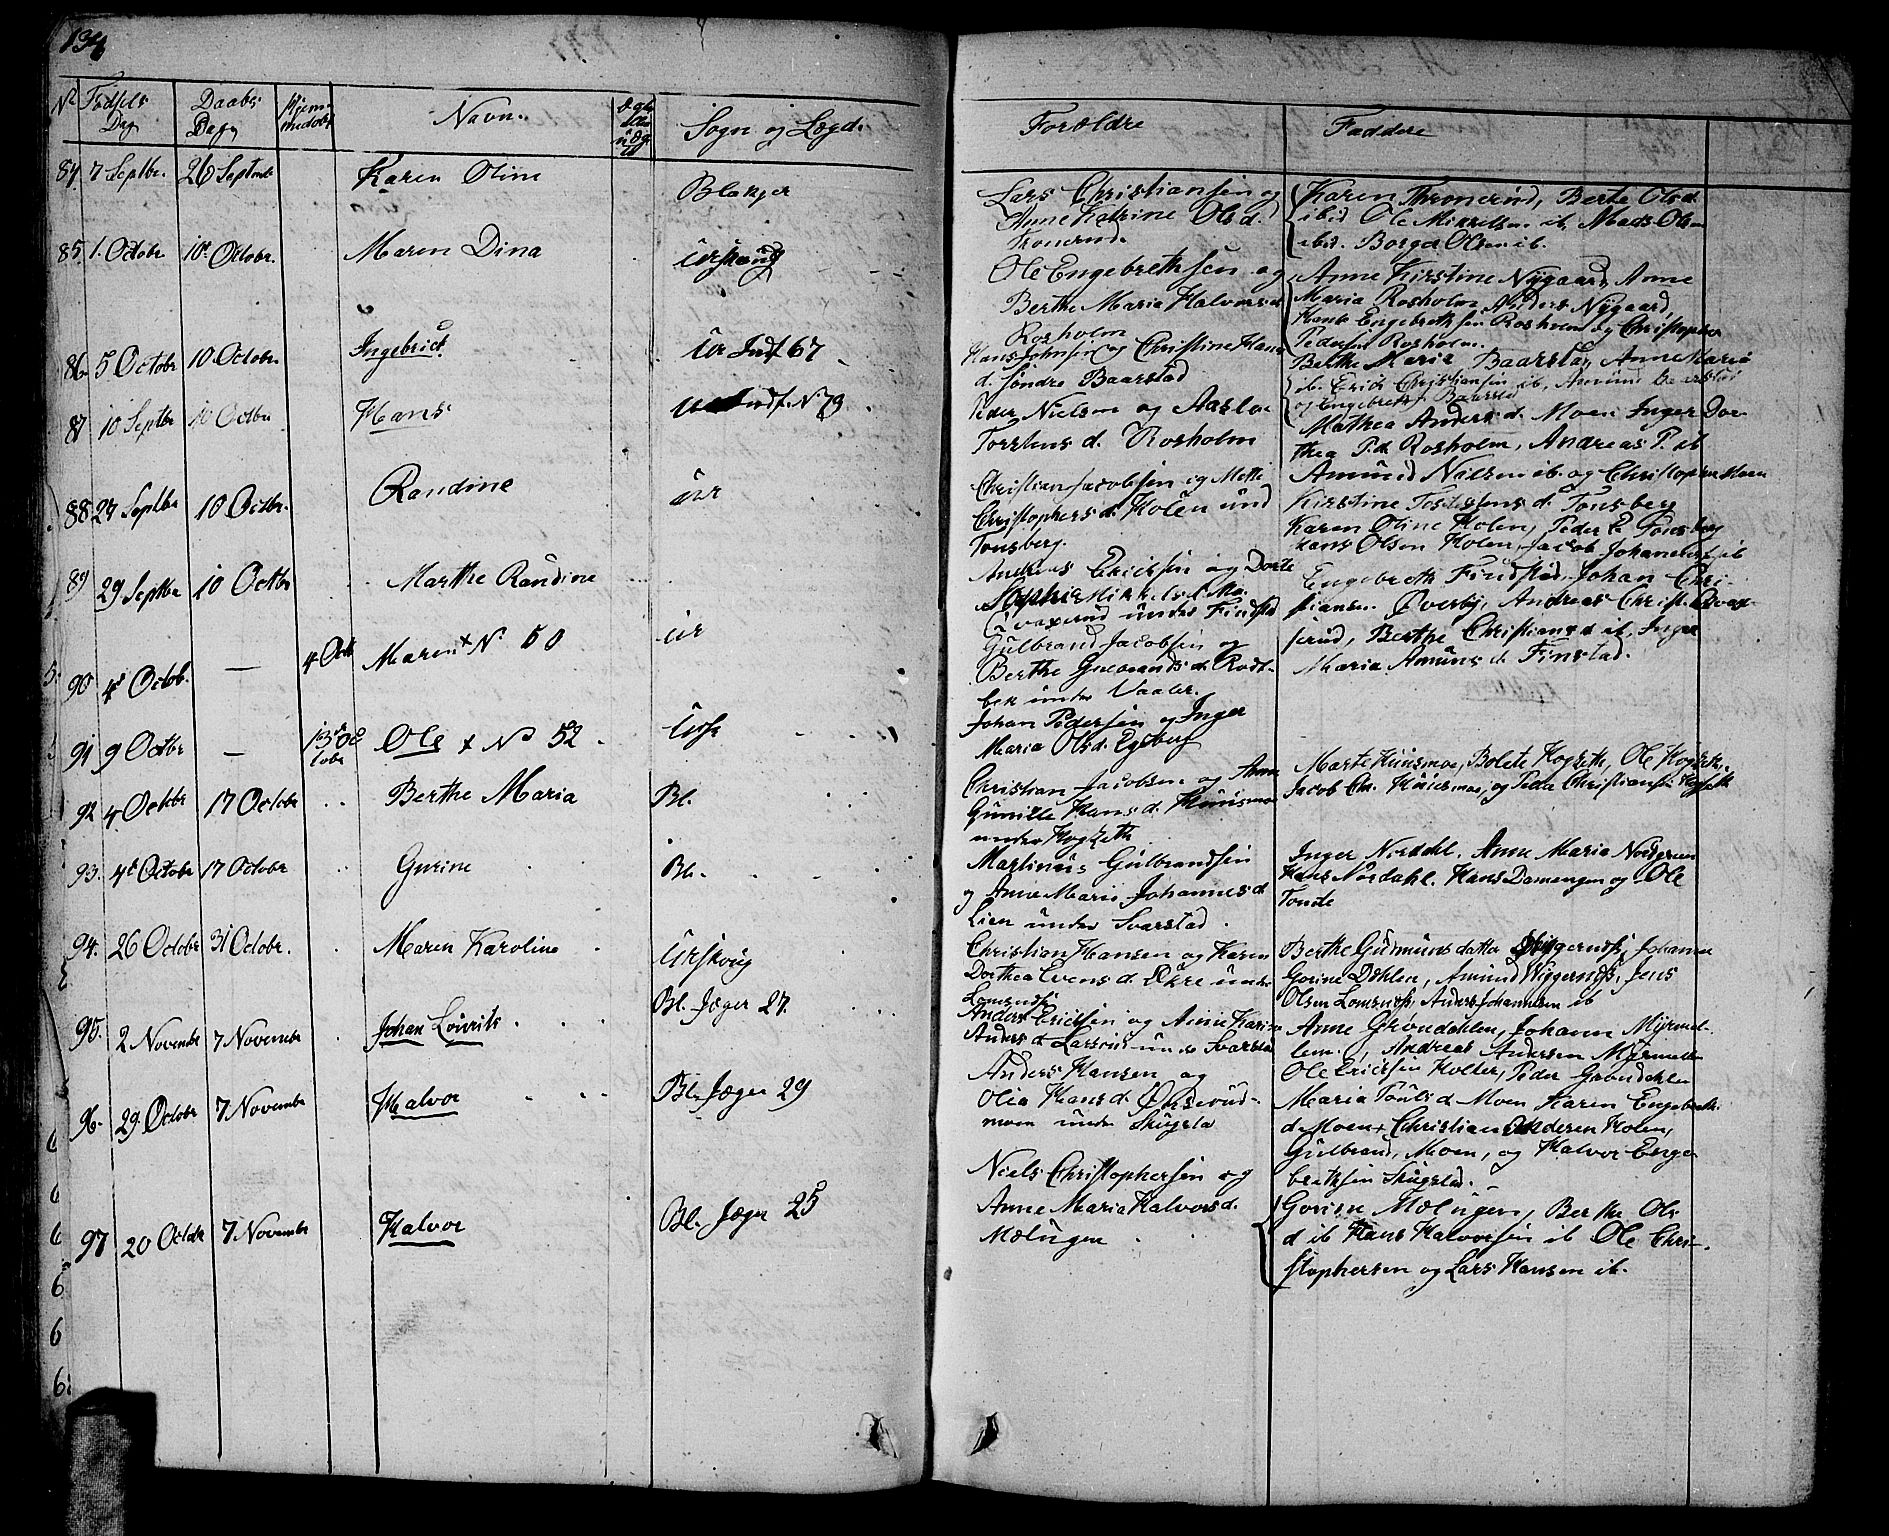 134
No Fødsels Dag
Daabs Dag
Hjemmedøbt
Navn.
Sogn og Lægd.
Forældre
Faddere
84 7 Septbr. 26 Septembr Karen Oline Blakjer
Lars Christiansen og
Anne Katrine Olsd.
Tronerud.
Karen Thronerud, Berte Olsd.
ibid Ole Mikkelsen ib. Mads Olsen
ibid. Borger Olsen ib.
85. 1. Octobr 10de Octobr. Maren Dina Urskoug
Ole Engebrethsen og
Berthe Maria Halvorsd
Rosholm
Anne Kirstine Nygaard, Anne
Maria Rosholm Anders Nygaard,
Hans Engebrethsen Rosholm og Christopher
Pedersen Rosholm.
86 5 Octobr 10. Octobr. Ingebrict. Ur Indf 67
Hans Johnsen og Christine Hans
d. søndre Baarstad
Berthe Maria Baarstad, Anne Maria
ib. Erich Christiansen ib, Amund Baarstad
og Engebreth Baarstad
87 10 Septbr 10 Octbr Hans Ur Indf. N 79
Peder Nielsen og Aaslo
Torstens d. Rosholm
Mathea Anders d. Moen Inger Dor
thea P.d. Rosholm, Andreas P. ib
Amund Nielsen ib. og Christopher Moen
88 27 Septbr 10 Octbr. Randine Ur
Christian Jacobsen og Mette
Christophers d. Holen und
Tonsberg.
Kirstine Tostens d. Tonsberg
Karen Oline Holen, Peder E Tonsberg
Hans Olsen Holen, Jacob Johannesen ib
89 29 Septbr 10 Octbr Marthe Randine
Andreas Ericksen og Dorte
Sophie Mikkelsd.
under Finstad
Engebreth Findstad, Johan Chri-
stiansen Øverby, Andreas Christ.
serud, Berthe Christians d ib, Inger
Maria Amuns d. Finstad.
90 4de Octob. — 4 Octb Maren x No 50 Ur
Gulbrand Jacobsen og
Berthe Gulbrands d. Rodt-
bek under Vaaler.
91 9 Octbr — 13de Oc
tobr Ole x No 52 Ursk
Johan Pedersen og Inger
Maria Olsd. Egeberg
92 4 Octobr 17 Octobr Berthe Maria Bl.
Christian Jacobsen og Anne
Gunilde Hans d. Huusmoe
under Hogseth
Marte Huusmoe, Bolete Hogseth, Ole Hogseth,
Jacob Chr. Huusmoe, og Peder Christiansen Hogseth
93. 4de Octobr 17 Octobr Gurine Bl.
Martinus Gulbrandsen
og Anne Marie Johannes d.
Lien under Svarstad.
Inger Nordahl. Anne Maria Nordgreen
Hans Nordahl. Hans Damengen og Ole
Tonde
94. 26 Octobr 31 Octobr. Maren Karoline Urskoug
Christian Hansen og Karen
Dorthea Evens d. Økre under
Lomsnøss
Berthe Gudmuns datter Wiggernøss, Johanne
Gorine Døhlen, Amund Wiggernøss, Jens
Olsen Lomsnøss, Anders Johannesen ib
95. 2 Novembr 7 Novembr Johan Lourits Bl. Jæger 27.
Anders Ericksen og Anne Karine
Anders d Larsrud under Svarstad
Anne Grøndahlen, Johann Myrmel-
lem, Andreas Andersen Myrmellem
Ole Ericksen Holter, Peder Grøndahlen
96. 29. Octobr 7 Novembr Halvor Bl. Jæger 29
Anders Hansen og
Olia Hans d.
moen under Skugstad
Maria Tonls d Moen Karen Engebreth.
d. Moen Christian Andersen Holen,
Gulbrand Moen, og Halvor Enge
brethsen Skugstad.
97 20 Octobr 7 Novembr Halvor Bl. Jæger 25
Niels Christophersen og
Anne Maria Halvors d.
Mølugen
Gorine Mølugen, Berthe Ols
d ib Hans Halvorsen ib Ole Chri-
stophersen og Lars Hansen ib.